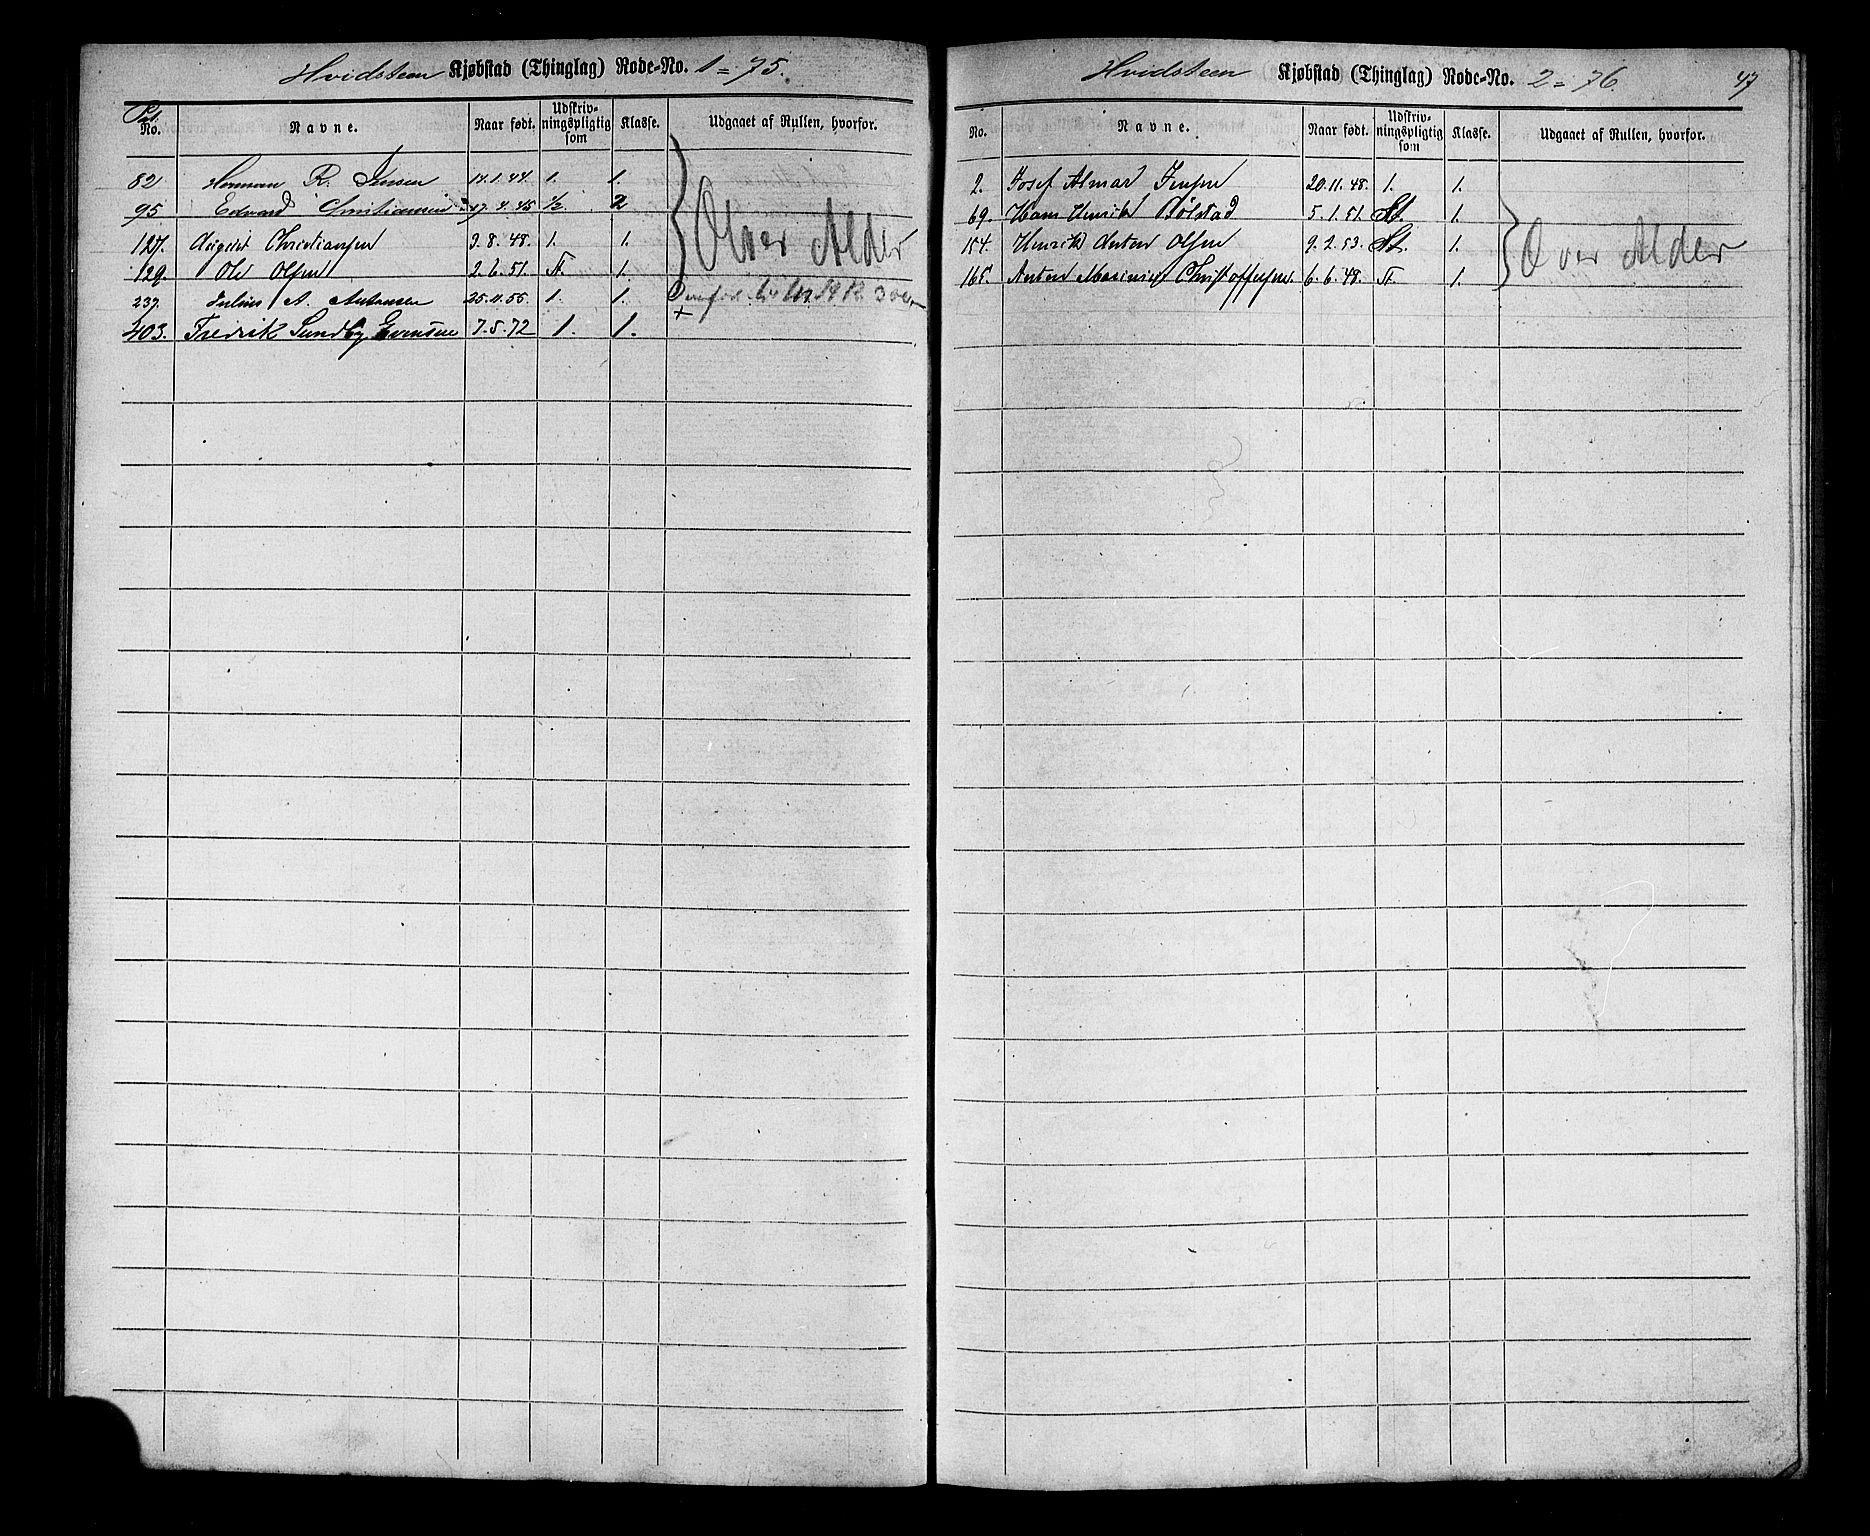 Hvidsteen Kjøbstad (Thinglag) Rode-No. 1 = 75.
No. Navne. Naar født. Udskriv-ningspligtig som Klasse. Udgaaet af Rullen, hvorfor.
82 Herman R. Jensen 14.1.44. 1. 1.
95 Edvard Christiansen 17.4.45 1/2 2
127. August Christiansen 3.8.48. 1. 1. Over Alder
129. Ole Olsen 2.6.51. St. 1.
237. Julius A. Antonsen 25.11.55. 1. 1.
403. Fredrik Sundby Evensen 7.5.72 1. 1. +
Hvidsteen Kjøbstad (Thinglag) Rode-No. 2 = 76. 47
No. Navne. Naar født. Udskriv-ningspligtig som Klasse. Udgaaet af Rullen, hvorfor.
2. Josef Almar Jensen 20.11.48. 1. 1.
69. Hans Henrik Bølstad 5.1.51. St. 1.
154. Henrik Anton Olsen 9.2.53. St. 1. Over Alder
165. Anton Christoffersen 6.6.48. St. 1.